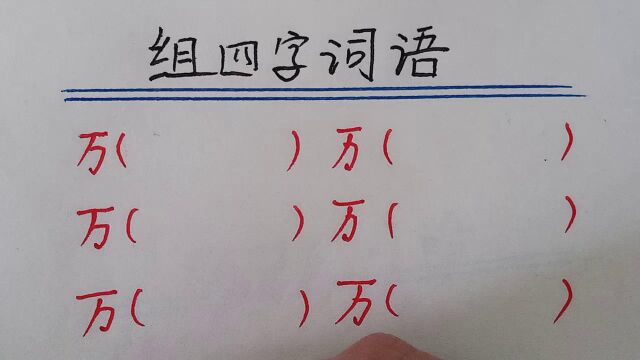 组四字词语
万( ) 万( )
万( ) 万( )
万( ) 万( )